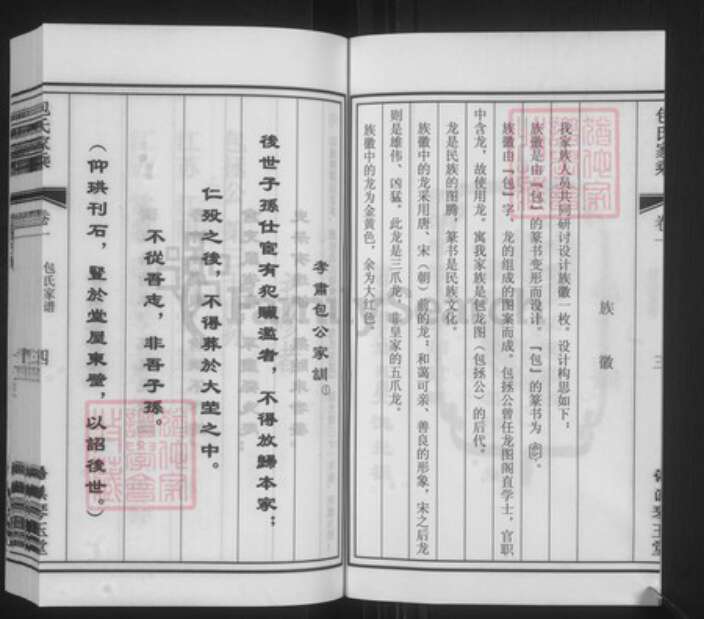 包氏家乘
卷一
三
族徽
我家族人员共同研讨设计族徽一枚。设计构思如下：
族徽是由『包』的篆书变形而设计。『包』的篆书为
族徽由『包』字、龙的组成的图案而成。包拯公曾任龙图阁直学士，官职
中含龙，故使用龙。寓我家族是包龙图（包拯公）的后代。
龙是民族的图腾，篆书是民族文化。
族徽中的龙采用唐、宋（朝）前的龙：和蔼可亲、善良的形象，宋之后龙
则是雄伟、凶猛。此龙是三爪龙，非皇家的五爪龙。
族徽中的龙为金黄色，余为大红色。
孝肃包公家訓①
後世子孫仕宦有犯贓濫者，不得放歸本家；
仁殁之後，不得葬於大茔之中。
不從吾志，非吾子孫。
（仰珙刊石，竪於堂屋東壁，以詔後世。）
包氏家乘
卷一
包氏家谱
四
FamilySearch